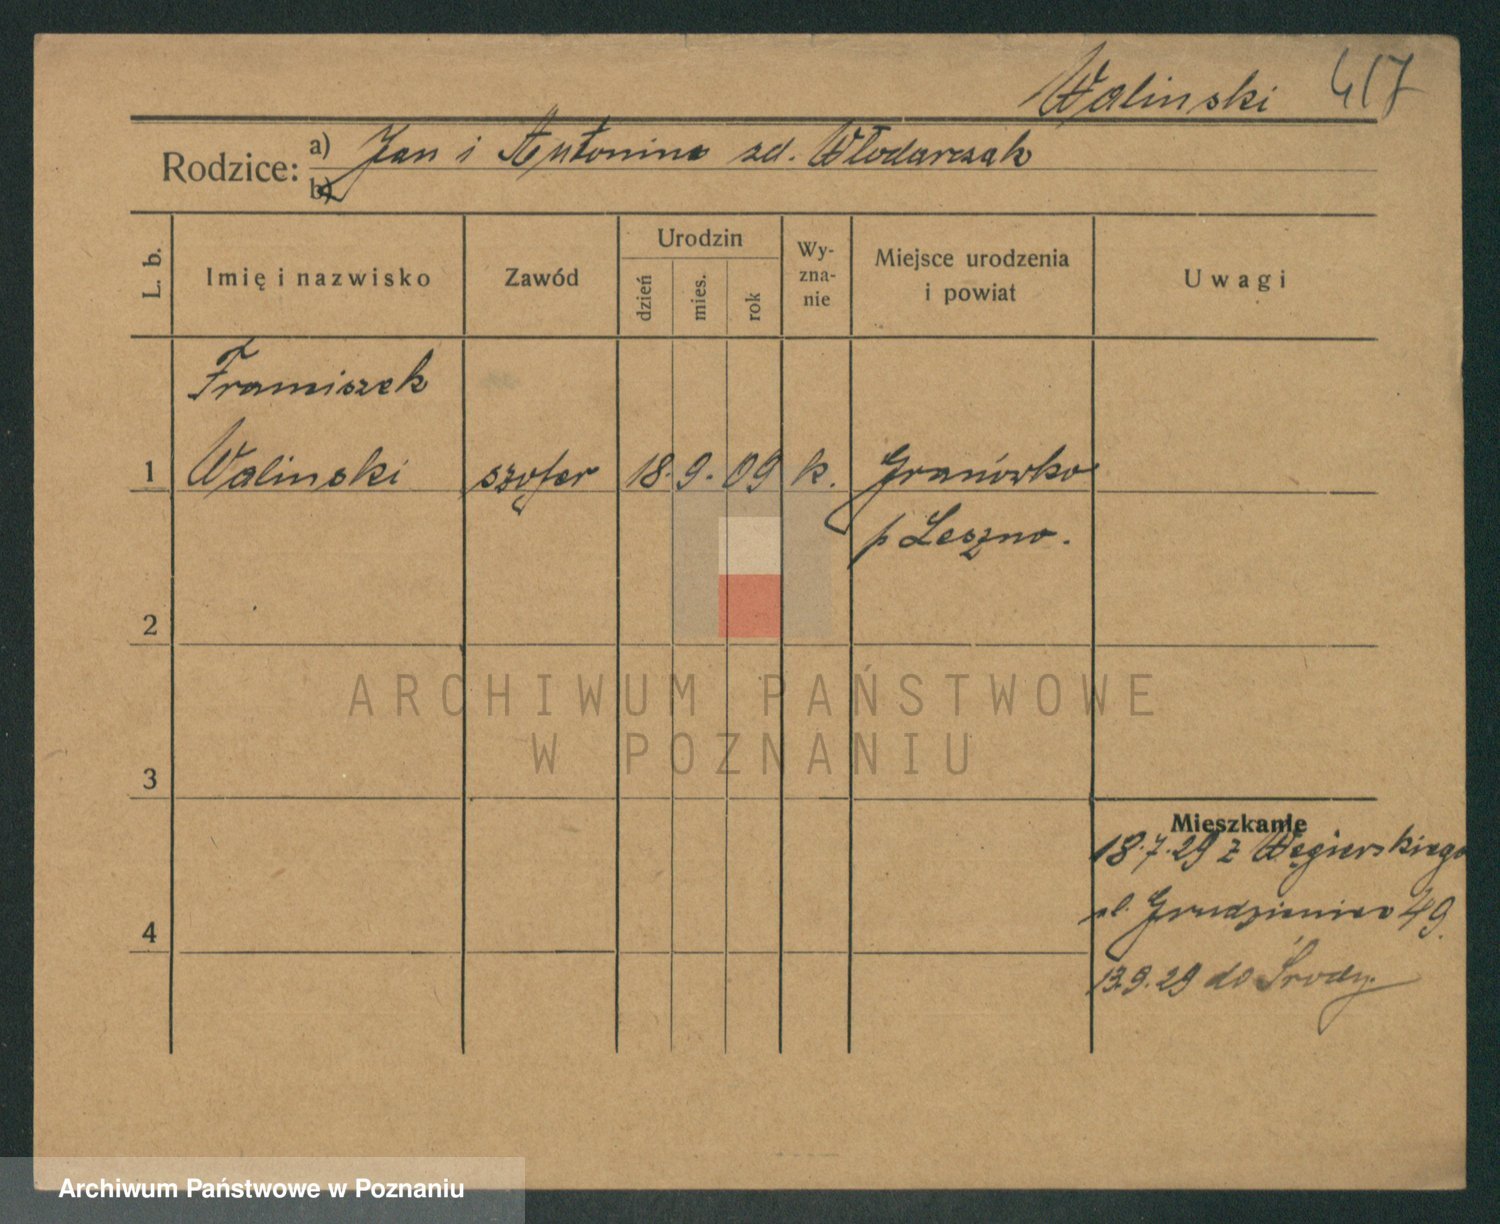 Walinski 417
Rodzice: a) Jan i Antonina zd. Włodarczak
b)
L. b.
Imię i nazwisko
Zawód
Urodzin
dzień
mies.
rok
Wy-
zna-
nie
Miejsce urodzenia
i powiat
Uwagi
Franciszek
1 Walinski szofer 18. 9. 09 k. Granówko
p Leszno.
2
3
4
Mieszkanie
18.7.29 z Węgierskiego
ul. Grudzieniec 49.
13.9.29 do Środy.
ARCHIWUM PAŃSTWOWE
W POZNANIU
Archiwum Państwowe w Poznaniu